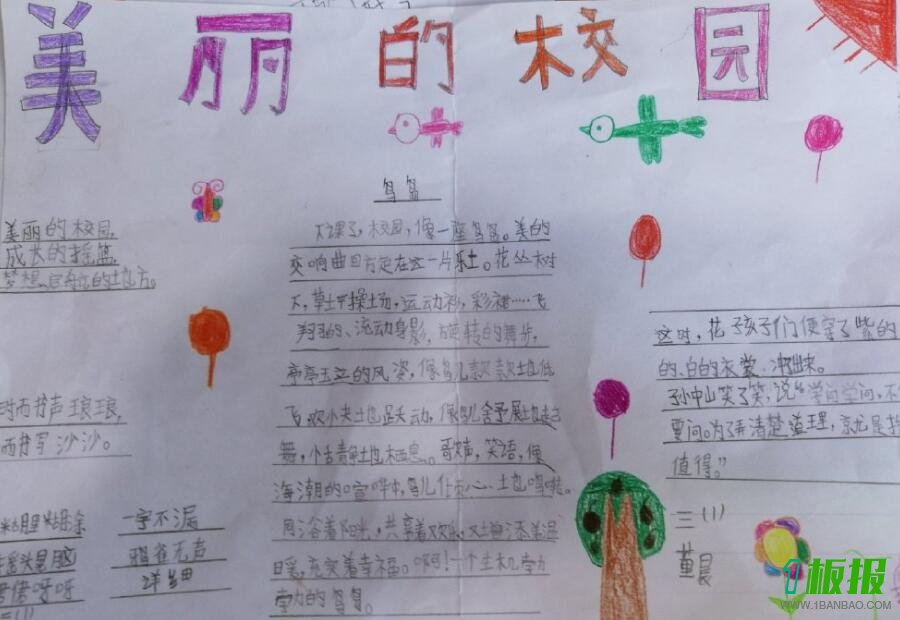 美丽的校园
美丽的校园,
成长的摇篮,
梦想
的地方。
时而书声琅琅,
而书写沙沙。
一字不漏
鸦雀无声
详细
三(1)
鸟岛
下课了,校园,像一座鸟岛。美的
交响曲回荡在这一片乐土。花丛树
下,草土干操土场,运动衫,彩裙……飞
翔的、流动身影,旋转的舞步,
亭亭玉立的风姿,像鸟儿款款地低
飞,欢心夹地跃动,像鸟儿舒展地起
舞,小古静地栖息。歌声,笑语,像
海潮的喧哗中,鸟儿任心地鸣啭。
阳光,共享着欢乐,
暖,充实着幸福。啊!一个生机
力的鸟岛。
这时,花孩子们便穿了紫的
的、白的衣裳,冲出来。
孙中山笑了笑,说:“学问学问,不
要问。为了弄清楚道理,就是挨
值得。”
三(1)
董晨
1板报
WWW.1BANBAO.COM